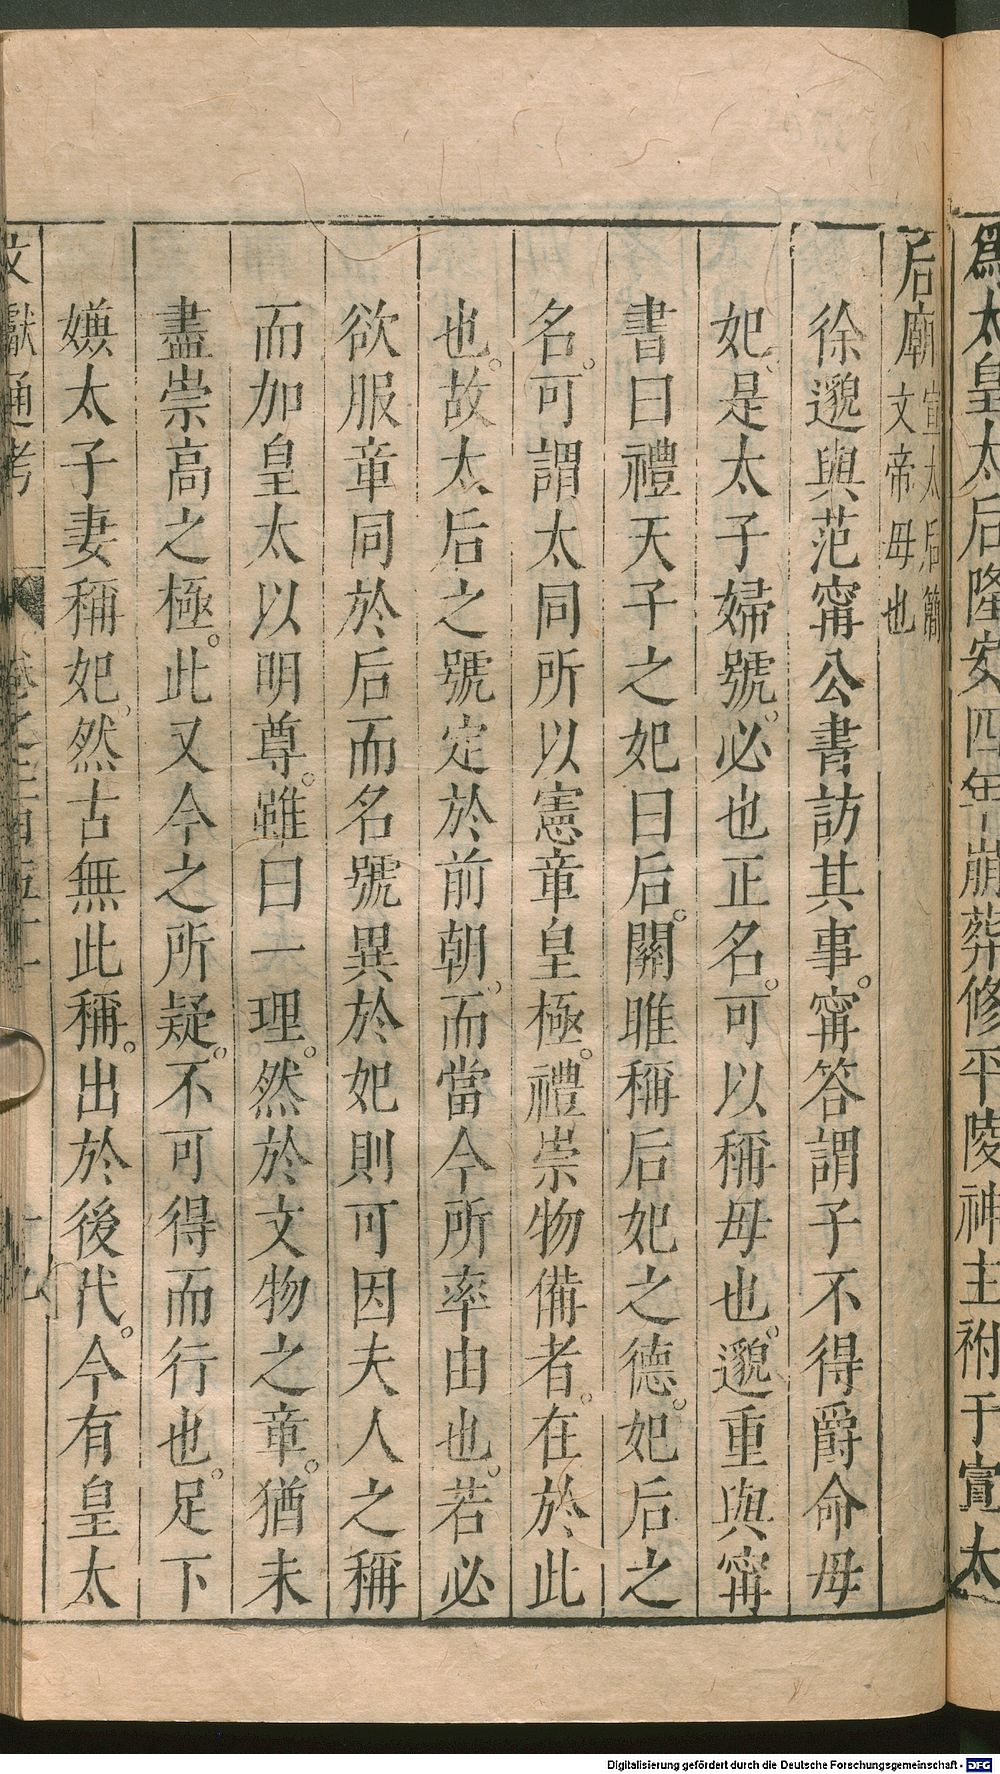 爲太皇太后隆安四年崩葬修平陵神主祔于宣太
后廟宣太后簡文帝母也
徐邈與范甯公書訪其事甯答謂子不得爵命母
妃是太子婦號必也正名可以稱母也邈重與甯
書曰禮天子之妃曰后關雎稱后妃之德妃后之
名可謂太同所以憲章皇極禮崇物備者在於此
也故太后之號定於前朝而當今所率由也若必
欲服章同於后而名號異於妃則可因夫人之稱
而加皇太以明尊雖曰一理然於文物之章猶未
盡崇高之極此又今之所疑不可得而行也足下
嫌太子妻稱妃然古無此稱出於後代今有皇太
文獻通考 卷之二百五十一 十九
Digitalisierung gefördert durch die Deutsche Forschungsgemeinschaft - DFG